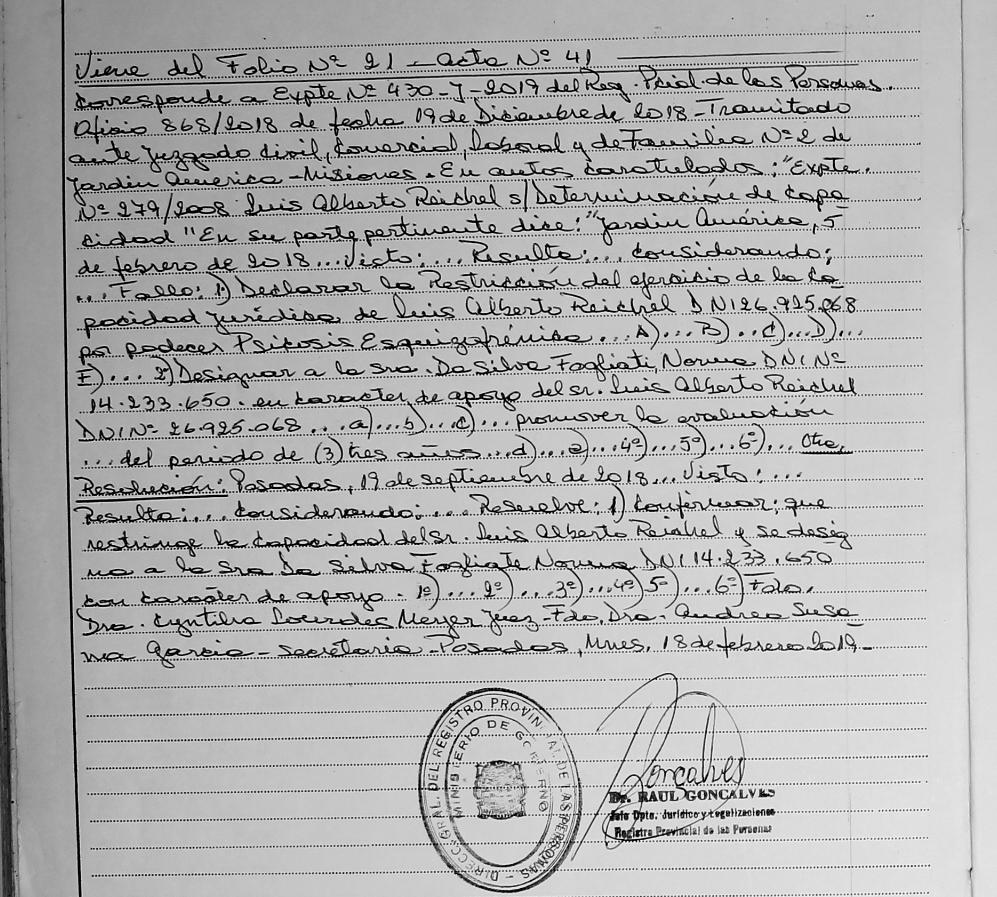 Viene del Folio Nº 21 - acta Nº 41
Corresponde a Expte Nº 430-J-2019 del Reg. Pcial. de las Personas.
Oficio 868/2018 de fecha 19 de Diciembre de 2018 - Tramitado
ante Juzgado Civil, Comercial, Laboral y de Familia Nº 2 de
Jardin America - Misiones. En autos caratulados: "Expte.
Nº 279/2008 Luis Alberto Reichel s/Determinación de capa
cidad" En su parte pertinente dice: "Jardin América, 5
de febrero de 2018... Visto: ... Resulta: ... considerando:
... Fallo: 1) Declarar la Restricción del ejercicio de la Ca
pacidad Jurídica de Luis Alberto Reichel DNI 26.925.068
por padecer Psicosis Esquizofrénica... A)... B)... C)... D)...
E)... 2) Designar a la sra. Da Silva Fogliati, Norma DNI Nº
14.233.650. en caracter de apoyo del sr. Luis Alberto Reichel
DNI Nº 26.925.068 ... a)... b)... c)... promover la evaluación
... del periodo de (3) tres años... d)... e)... 4º)... 5º)... 6º)... Otra,
Resolución: Posadas, 19 de septiembre de 2018... Visto: ...
Resulta: ... Considerando: ... Resuelve: 1) Confirmar; que
restringe la capacidad del Sr. Luis Alberto Reichel y se desig
na a la Sra Da Silva Fogliate Norma DNI 14.233.650
con carácter de apoyo - 1º)... 2º)... 3º)... 4º) 5º)... 6º) Fdo.
Dra. Cynthia Lourdes Meyer Juez - Fdo. Dra. Andrea Susa
na Garcia - Secretaria - Posadas, Mnes, 18 de febrero 2019 -
DIRECC. GRAL. DEL REGISTRO PROVINCIAL DE LAS PERSONAS -
MINISTERIO DE GOBIERNO
Goncalves
Dr. RAUL GONCALVES
Jefe Dpto. Jurídico y Legalizaciones
Registro Provincial de las Personas